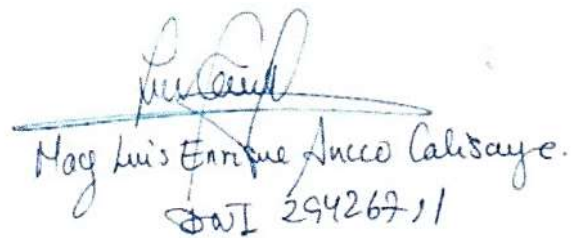 Mag Luis Enrique Ancco Calisaye.
DNI 29426711